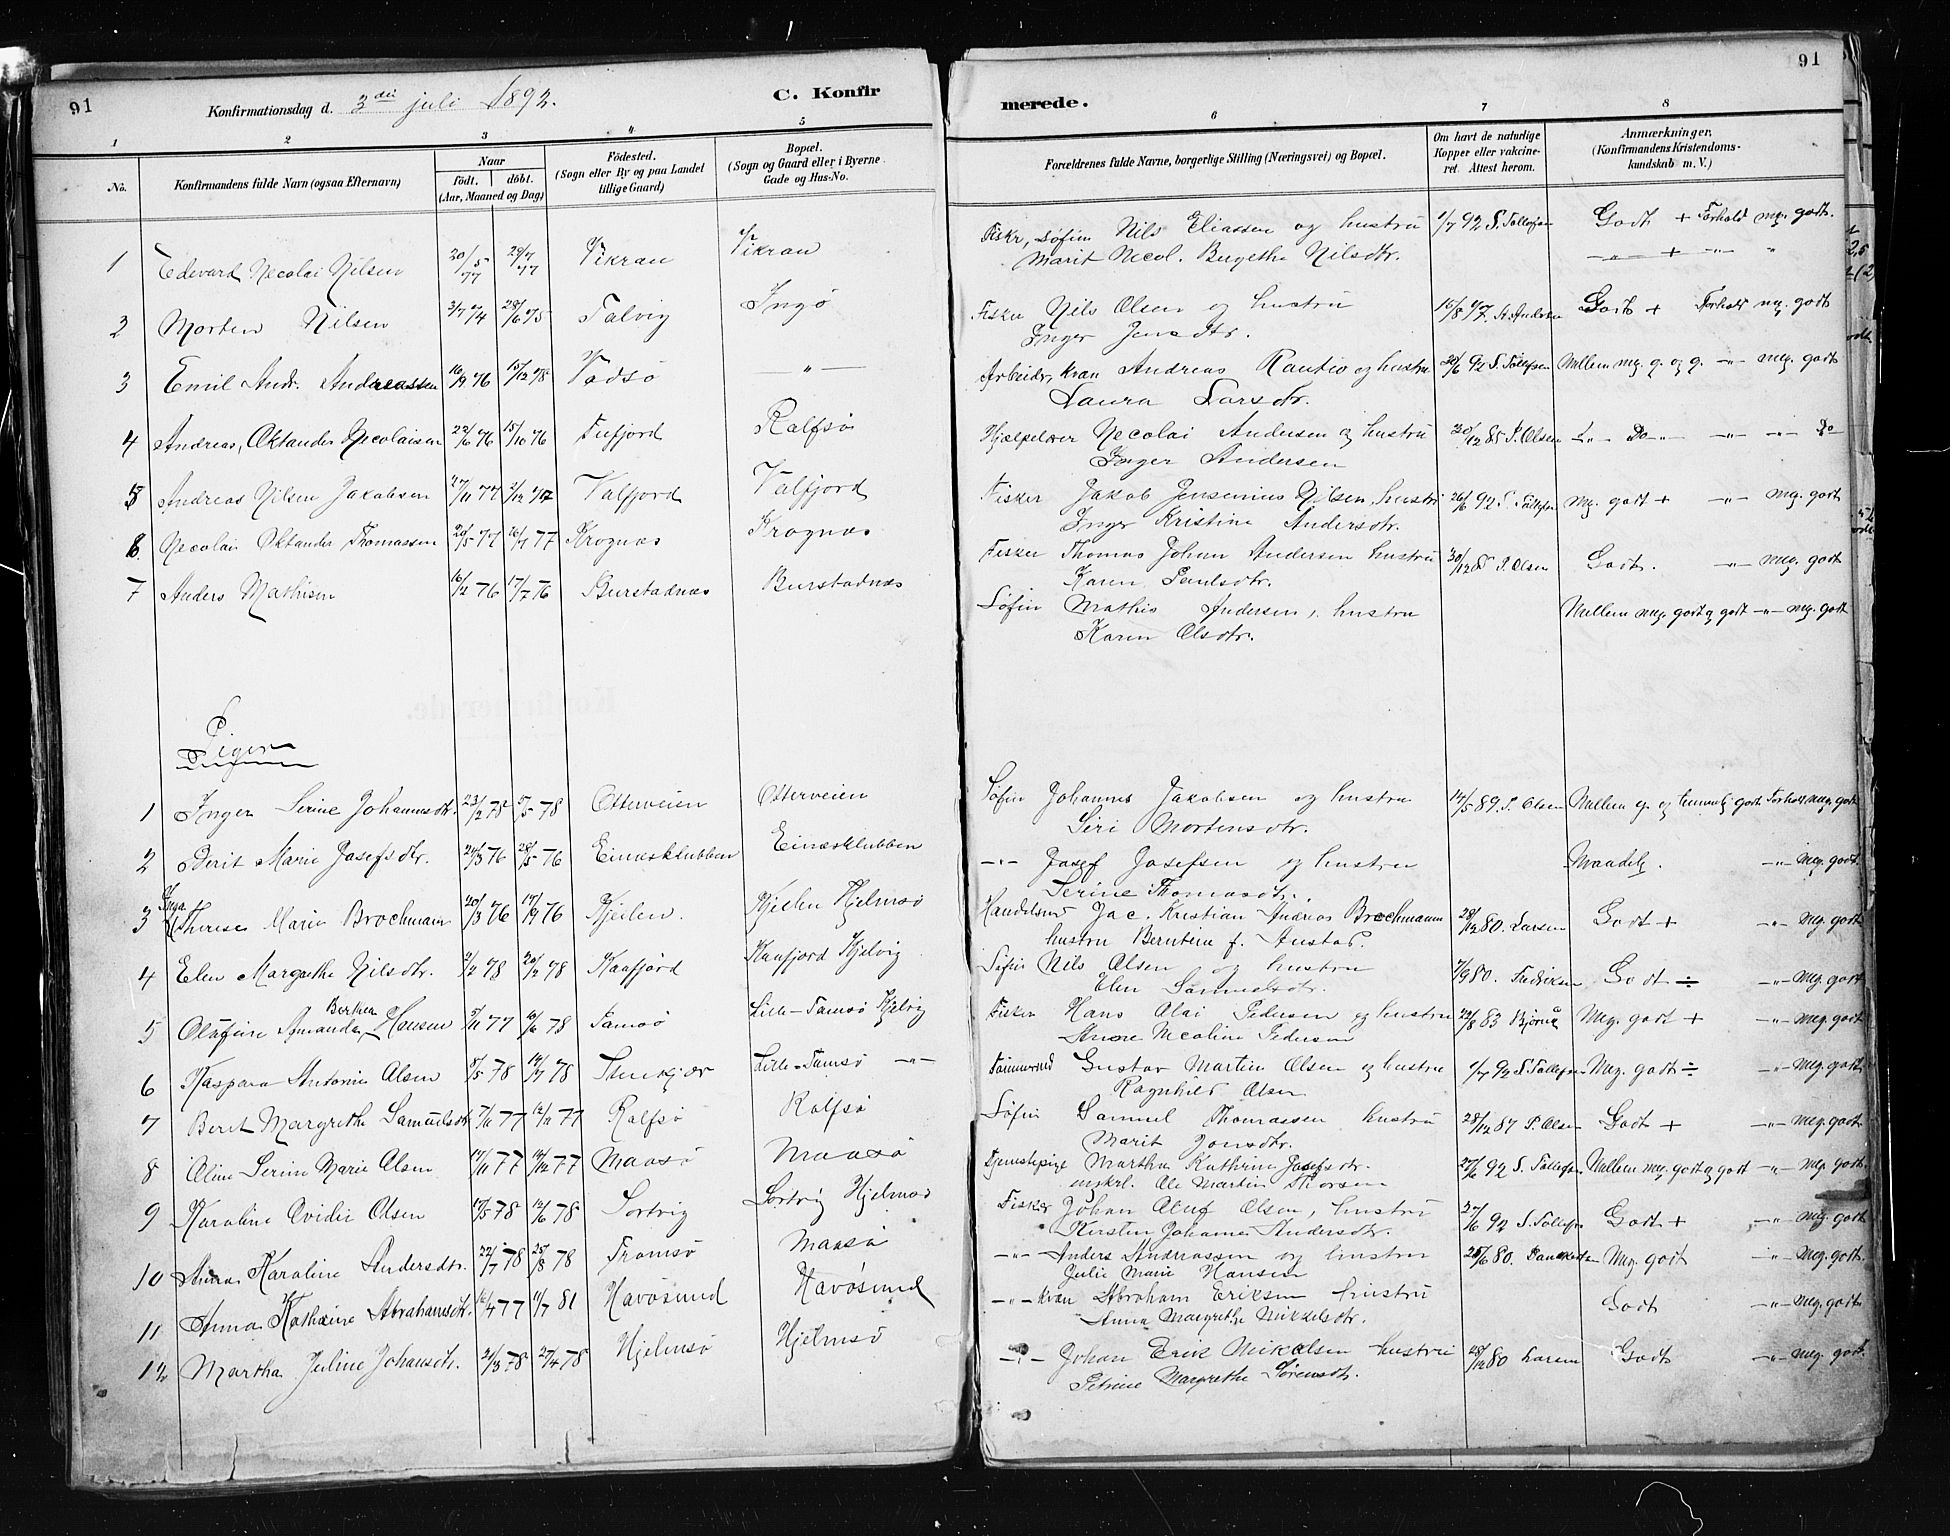 91
Konfirmationsdag d. 3die juli 1892.
C. Konfir
merede.
91
1 2 3 4 5 6 7 8
No.
Konfirmandens fulde Navn (ogsaa Efternavn)
Naar
født. døbt.
(Aar, Maaned og Dag)
Fødested.
(Sogn eller By og paa Landet
tillige Gaard)
Bopæl.
(Sogn og Gaard eller i Byerne
Gade og Hus-No.
Forældrenes fulde Navne, borgerlige Stilling (Næringsvei) og Bopæl.
Om havt de naturlige
Kopper eller vakcine-
ret Attest herom.
Anmærkninger,
(Konfirmandens Kristendoms-
kundskab m. V.)
1 Edevard Necolai Nilsen 20/5 77 29/7 77 Vikran Vikran Fisker, Søfin Nils Eliassen og hustru 1/7 92 S. Tollefsen Godt + Forhold meg. godt.
Marit Necol. Bergethe Nilsdtr. -"- + -"- "
2 Morten Nilsen 3/7 74 28/6 75 Talvig Ingø Fisker Nils Olsen og hustru 15/8 77. A. Andersen Godt + Forhold meg. godt
Inger Jensdtr.
3 Emil Andr. Andreassen 16/9 76 15/12 78 Vadsø -"- Arbeider, kvæn Andreas Rautio og hustru 20/6 92 S. Tollefsen Mellem meg. g. og g. -"- meg. godt
Laura Larsdtr.
4 Andreas, Oktander Necolaisen 22/6 76 15/10 76 Tufjord Rolfsø Hjælpelærer Necolai Andersen og hustru 30/12 85 P. Olsen -"- Do -"- -"- -"- Do
Inger Andersen
5 Andreas Nilsen Jakobsen 27/11 77 2/12 77 Valfjord Valfjord Fisker Jakob Jensenius Nilsen, hustru 26/6 92 S. Tollefsen meg. godt + -"- meg. godt
Inger Kristine Andersdtr.
6 Necolai Oktander Thomassen 20/5 77 16/7 77 Krognæs Krognæs Fisker Thomas Johan Andersen hustru 30/12 85 P. Olsen Godt. -"- meg. godt
Karen Paulsdtr.
7 Anders Mathisen 16/2 76 17/7 76 Burstadnæs Burstadnæs Søfin Mathis Andersen, hustru Mellem meg. godt og godt -"- meg. godt
Karen Olsdtr.
Piger
1 Inger Serine Johannesdtr. 23/2 78 5/5 78 Otterveien Otterveien Søfin Johannes Jakobsen og hustru 14/5 89. P. Olsen Mellem g. og temmelig godt Forhold meg. godt
Siri Mortensdtr.
2 Berit Marie Josefsdtr. 24/3 76 28/5 76 Einæsklubben Einæsklubben -"- Josef Josefsen og hustru Maadelg. -"- meg. godt.
Serine Thomasdtr.
3 Inga Therese Marie Brochmann 20/3 76 17/9 76 Kjeilen. Kjeilen Hjelmsø Handelsmd Jac. Kristian Andreas Brochmann 28/12 80. Larsen Godt + -"- Meg. godt
hustru Berntine f. Anstad.
4 Elen Margrethe Nilsdtr. 2/2 78 20/2 78 Kaafjord Kaafjord Hjelvig Søfin Nils Olsen og hustru 7/9 80. Fredriksen Godt ÷ -"- Meg. godt
Elen Samuelsdtr.
5 Olufine Amanda Berken Hansen 5/11 77 10/6 78 Tamsø Lille-Tamsø Hjelvig Fisker Hans Olai Pedersen og hustru 22/8 83 Bjørnå Meg. godt + -"- meg. godt
Anne Nicoline Pedersen
6 Kaspara Antonie Olsen 8/5 78 14/7 78 Stenkjær Lille-Tamsø -"- Tømmermd Gustav Martin Olsen og hustru 1/7 92 S. Tollefsen Meg. godt ÷ -"- Meg. godt
Ragnhild Olsen
7 Beret Margrethe Samuelsdtr. 7/11 77 12/11 77 Rolfsø Rolfsø Søfin Samuel Thomassen hustru 28/12 87 P. Olsen Godt + -"- meg. godt
Marit Jonsdtr.
8 Oline Serine Marie Olsen 14/11 77 14/12 77 Maasø Maasø Tjenestepige Martha Kathrine Josefsdtr. 27/6 92 S. Tollefsen Mellem meg. godt og godt -"- Meg. godt
ungkrl. Ole Martin Thorsen
9 Karoline Ovidie Olsen 17/5 78 12/6 78 Sortvig Sortvig Hjelmsø Fisker Johan Oluf Olsen, hustru 27/6 92 S. Tollefsen Godt + -"- meg godt
Kirsten Johanne Andersdtr.
10 Anna Karoline Andersdtr. 22/7 78 25/8 78 Tromsø Maasø -"- Anders Andreassen og hustru 25/6 80. Meg godt -"- Meg. godt.
Julie Marie Hansen
11 Anna Kathrine Abrahamsdtr. 16/4 77 11/7 81 Havøsund Havøsund -"- kvæn Abraham Eriksen hustru Godt -"- Meg. godt
Anna Margrethe Mikkelsdtr.
12 Martha Juline Johansdtr. 21/3 78 27/4 78 Hjelmsø Hjelmsø -"- Johan Erik Mikalsen hustru 28/12 80 Larsen Godt -"- meg godt.
Petrine Margrethe Sørensdtr.